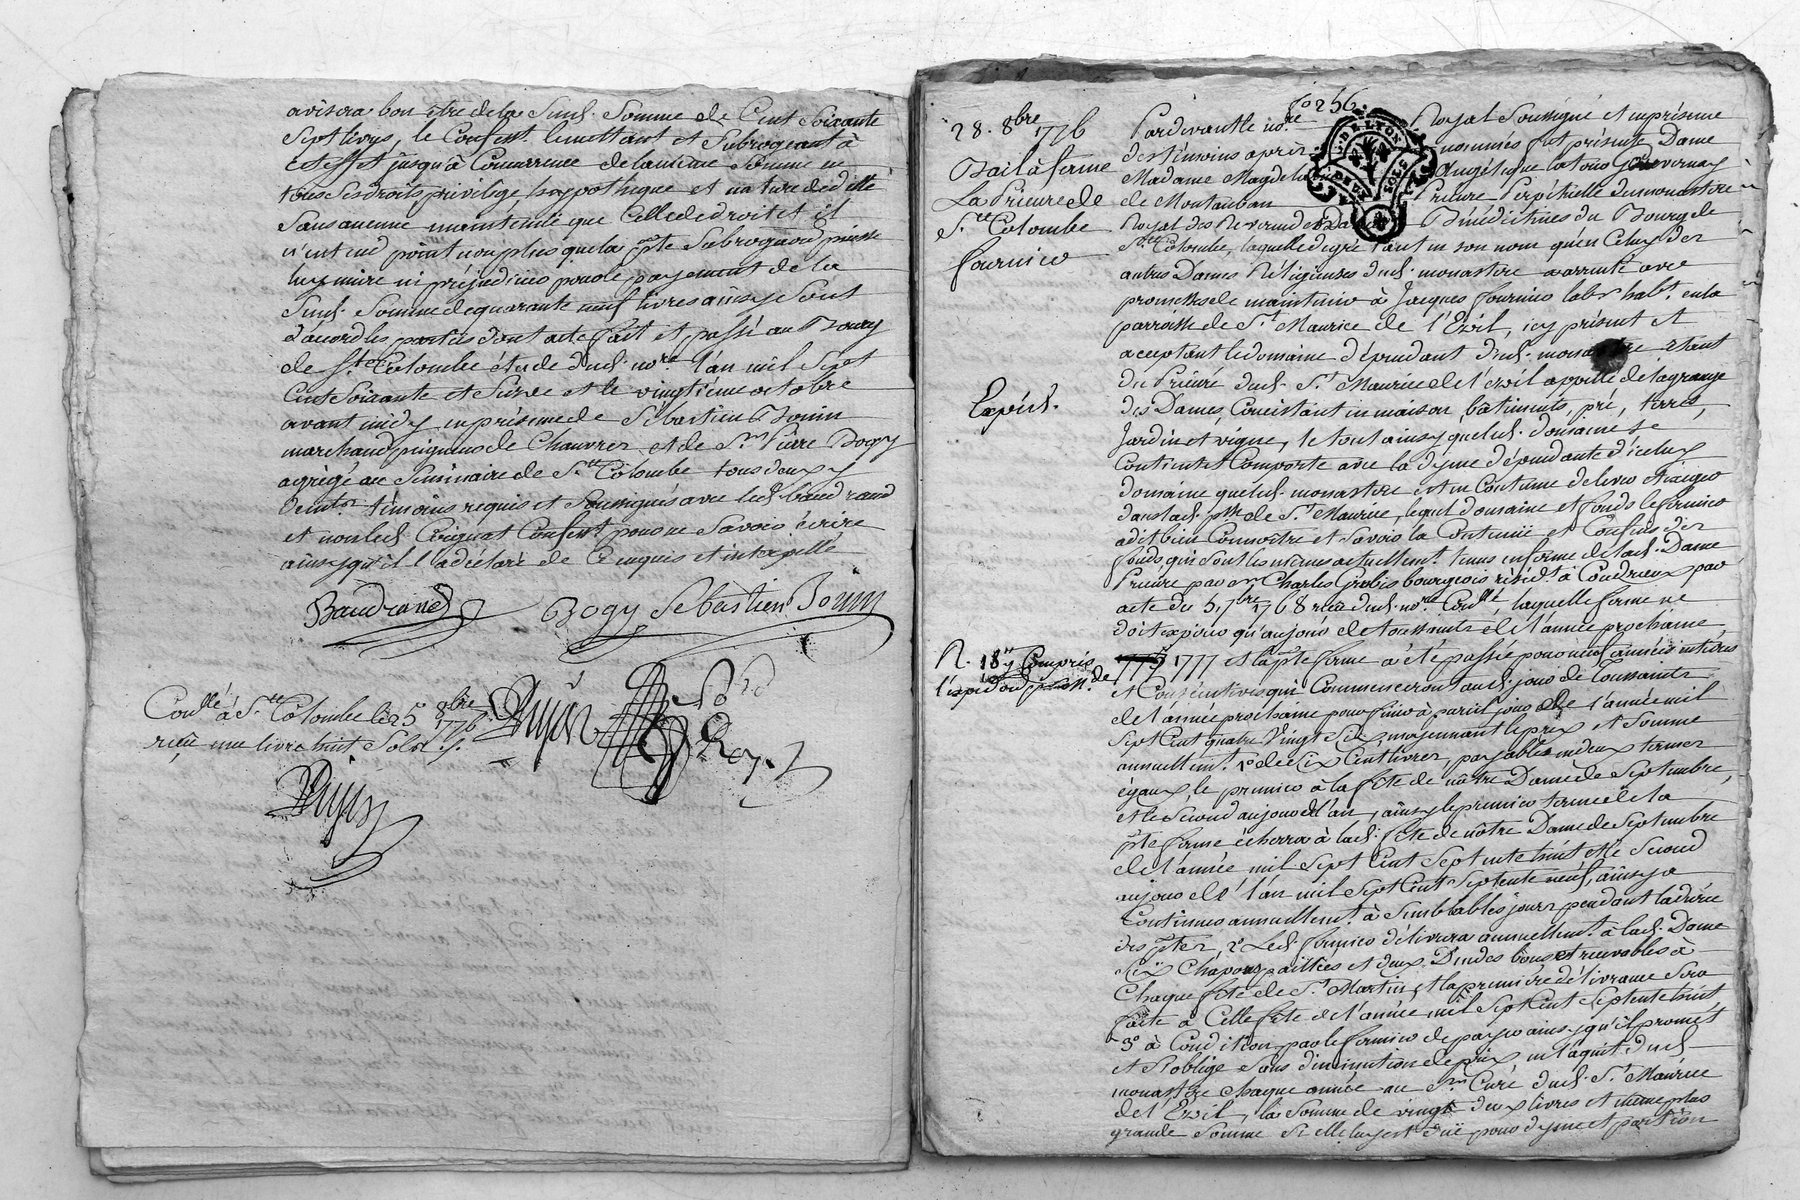 avisera bon être de la Susd. Somme de Cent Soixante
Sept livres, le Confess.t le mettant et Subrogeant à
Cet effet jusqu'à Concurrence de la même Somme en
tous ses droits privilège hypothèque et nature de
Sans aucune maintenue que Celle de droit et il
n'entend point non plus que la p̃te Subrogaõn puisse
luy nuire ni préjudicier pour le payement de la
Susd. Somme de quarante neuf livres ainsy Sont
d'accord les parties dont acte fait et passé au Bourg
de S.te Colombe étude dud. no.re l'an mil Sept
Cent Soixante et Seize et le vingtième octobre
avant midy en présence de Sébastien Bonin
marchand peigneur de Chanvres et de S.r Pierre Bogy
agrégé au Séminaire de S.te Colombe tous deux y
témoins requis et Soussignés avec led. baudrand
et non led. Confess.t pour ne Savoir écrire
ainsy qu'il l'a déclaré de Ce enquis et interpellé
Baudrand Bogy Sebastien Bonin
Con.llé à S.te Colombe le 25 8bre 1776
reçu une livre huit Sols
f.o 256.
28. 8bre 1776
Bail à ferme
La Prieure de
S.te Colombe
fournier
Expéd.
Pardevant le no.re Royal Soussigné et en présence
des témoins après nommés fut présente Dame
Madame Magdelaine Angélique
de Montauban Prieure Perpétuelle du monastère
Royal des Révérendes Dames Bénédictines du Bourg de
S.te Colombe, laquelle de gré tant en son nom qu'en Celuy des
autres Dames Religieuses dud. monastère a arrenté avec
promesse de maintenir à Jacques fournier lab.r hab.t en la
parroisse de S.t Maurice de l'Exil, icy présent et
acceptant le domaine dépendant dud. monastère étant
du Prieuré dud. S.t Maurice de l'exil appellé de la grange
des Dames, Consistant en maison, bâtiments, pré, terres,
Jardin et vigne, le tout ainsy que led. domaine se
Contient et Comporte avec la dyme dépendante d'iceluy
domaine que led. monastère est en Coutume de lever et exiger
dans lad. p̃sse de S.t Maurice, lequel domaine et fonds le fermier
a dit bien Connoitre et Savoir la Contenue et Confins des
fonds qui sont les mêmes actuellem.t tenus en ferme de lad. Dame
Prieure par S.r Charles Grubis bourgeois résid.t à Condrieux par
acte du 5. 7bre 1768 reçu dud. no.re Con.llé, laquelle ferme ne
doit expirer qu'au jour de toussaints de l'année prochaine
1777 et la p̃te ferme a été passée pour neuf années entières
et Consécutives qui Commenceront aud. jour de Toussaints
de l'année prochaine pour finir à pareil jour de l'année mil
Sept Cent quatre Vingt Six, moyennant le prix et Somme
annuellem.t 1° de Six Cent livres, payables en deux termes
égaux, le premier à la fête de nôtre Dame de Septembre,
et le Second au jour de l'an, ainsy le premier terme de la
p̃te ferme écherra à lad. fête de nôtre Dame de Septembre
de l'année mil Sept Cent Septente huit et le Second
au jour de l'an mil Sept Cent Septente neuf, ainsy a
Continuer annuellem.t à Semblables jours pendant la durée
des p̃tes, 2° Led. fermier délivrera annuellem.t à lad. Dame
Six Chapons paillés et deux Dindes bons et recevables à
Chaque fête de S.t Martin, et la première délivrance Sera
faite à Celle fête de l'année mil Sept Cent Septente huit,
3° à Condition par le fermier de payer ainsy qu'il promet
et S'oblige Sans diminution de prix en l'aquit dud.
monastère chaque année au S.r Curé dud. S.t Maurice
de l'Exil, la Somme de vingt deux livres et même plus
grande Somme Si elle luy est düe pour dyme et portion